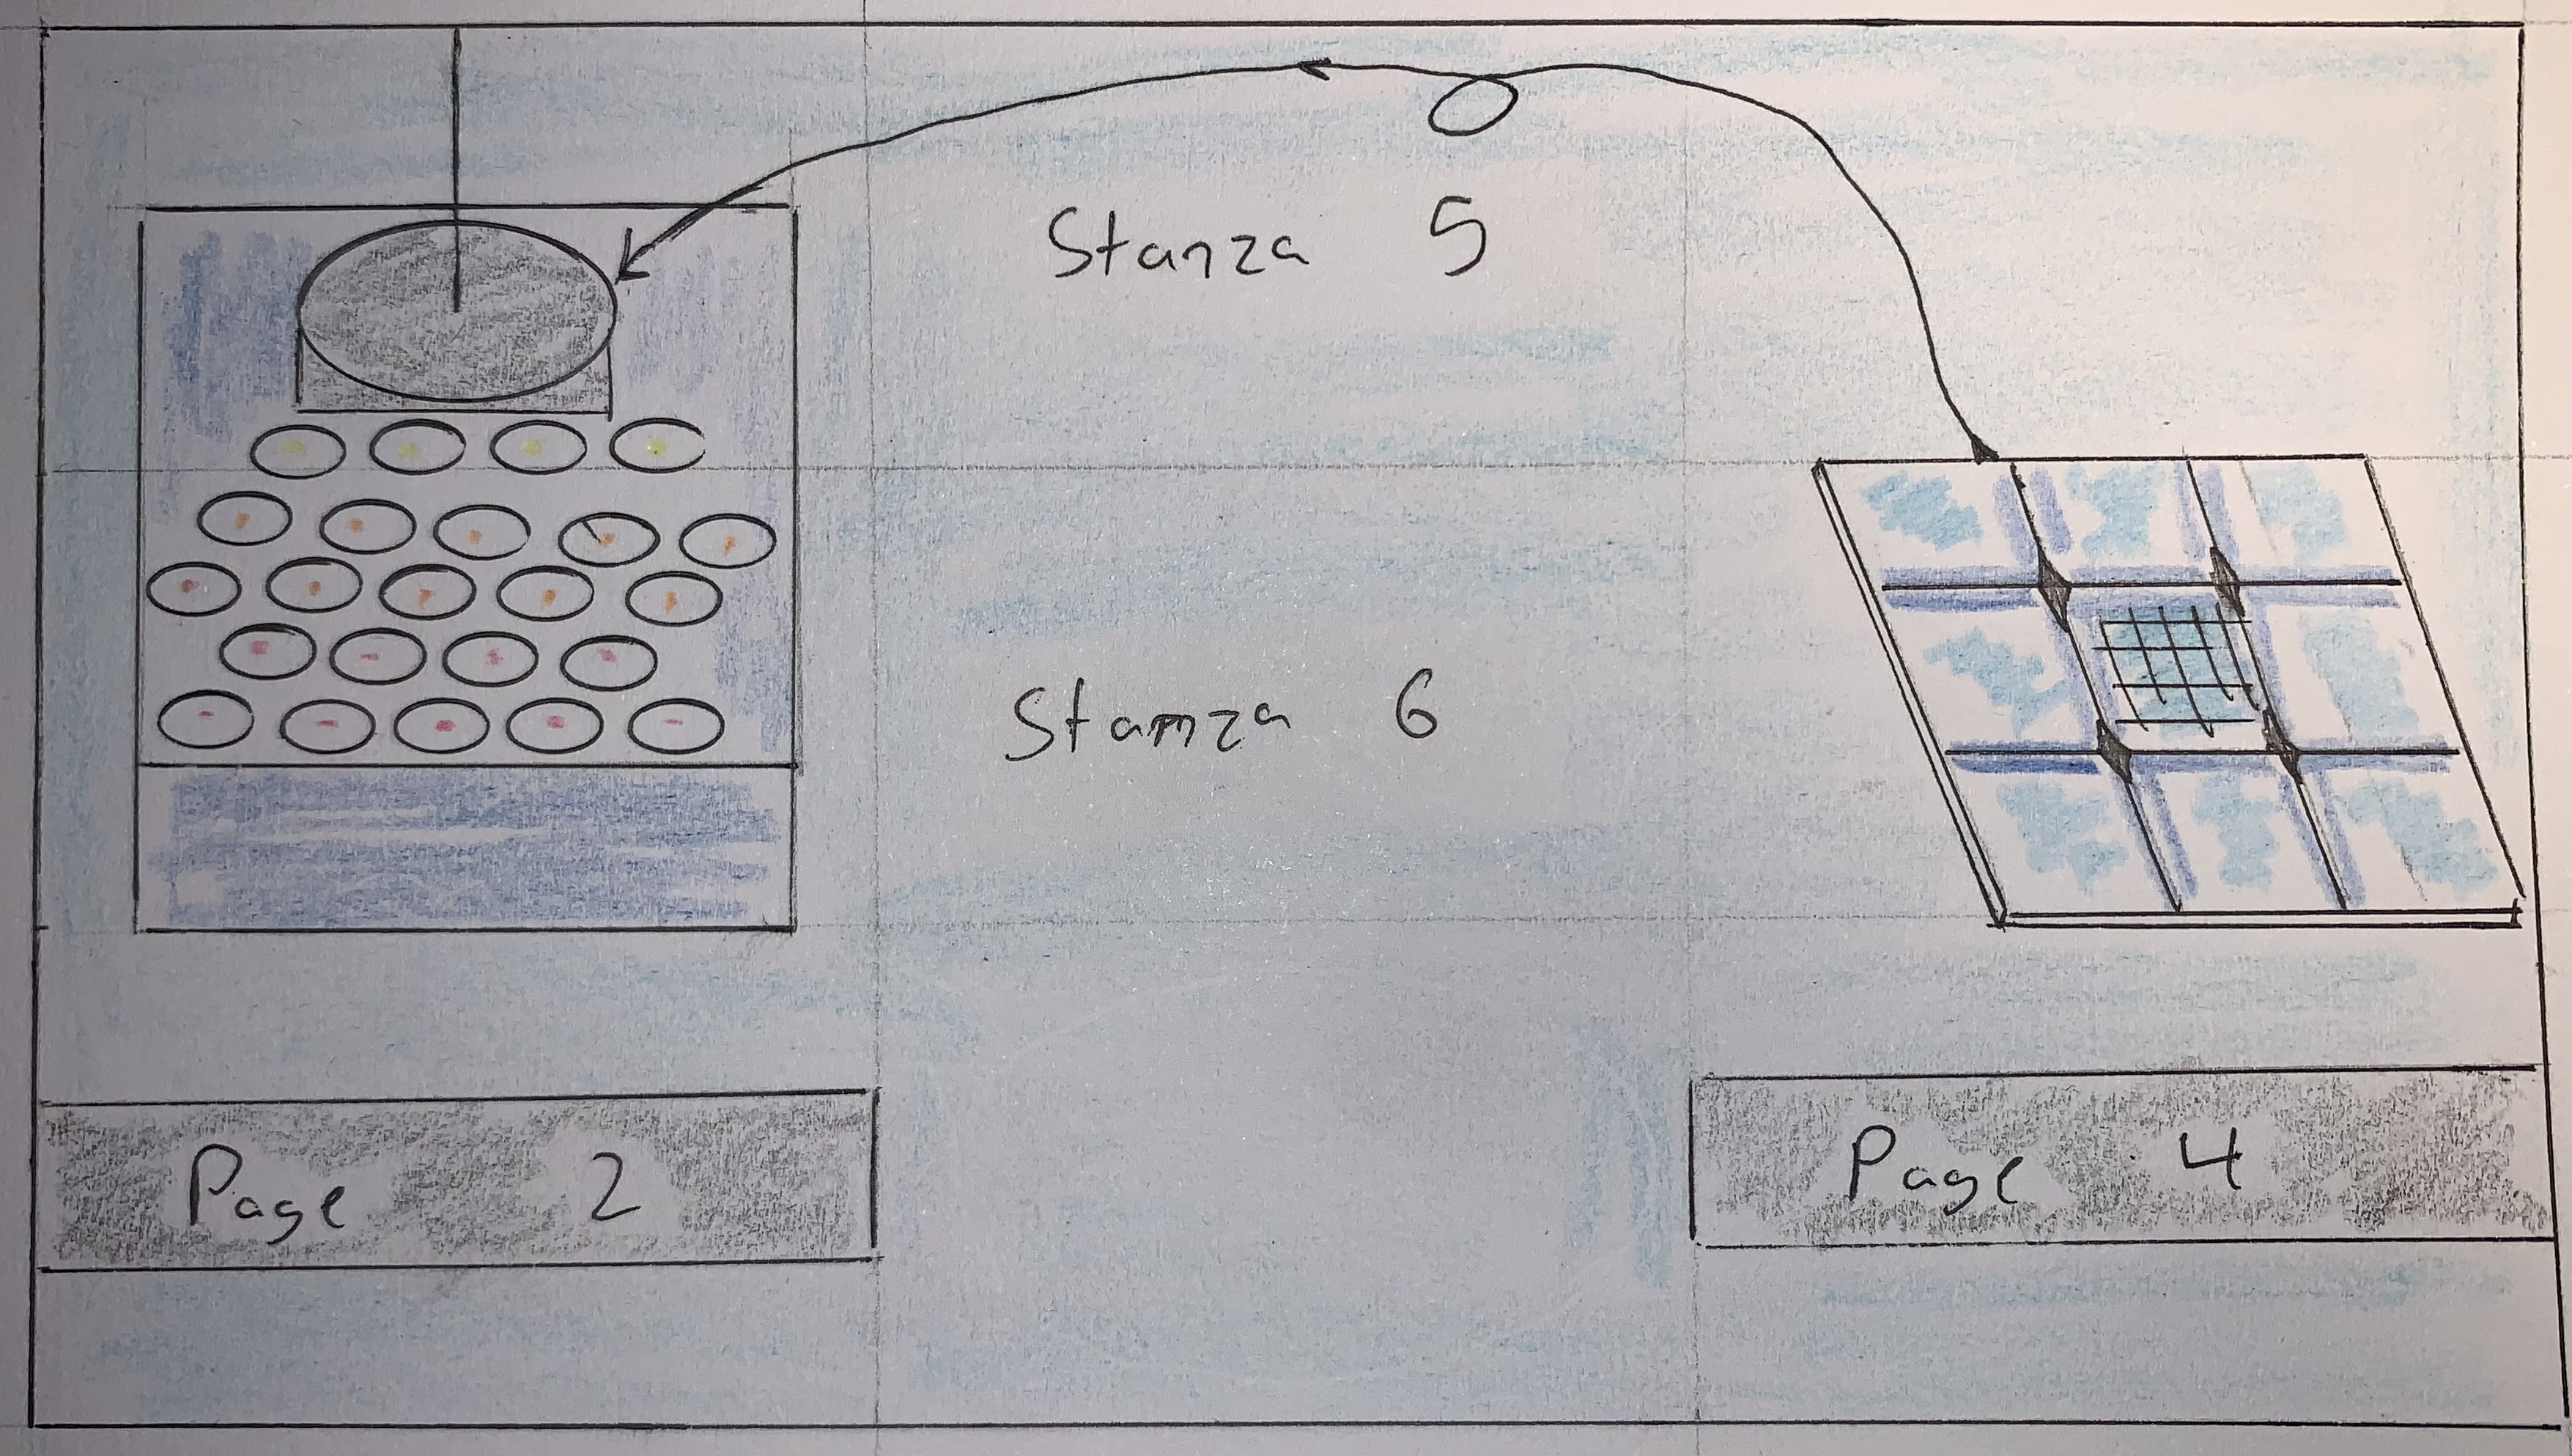 Stanza 5
Stanza 6
Page 2
Page 4